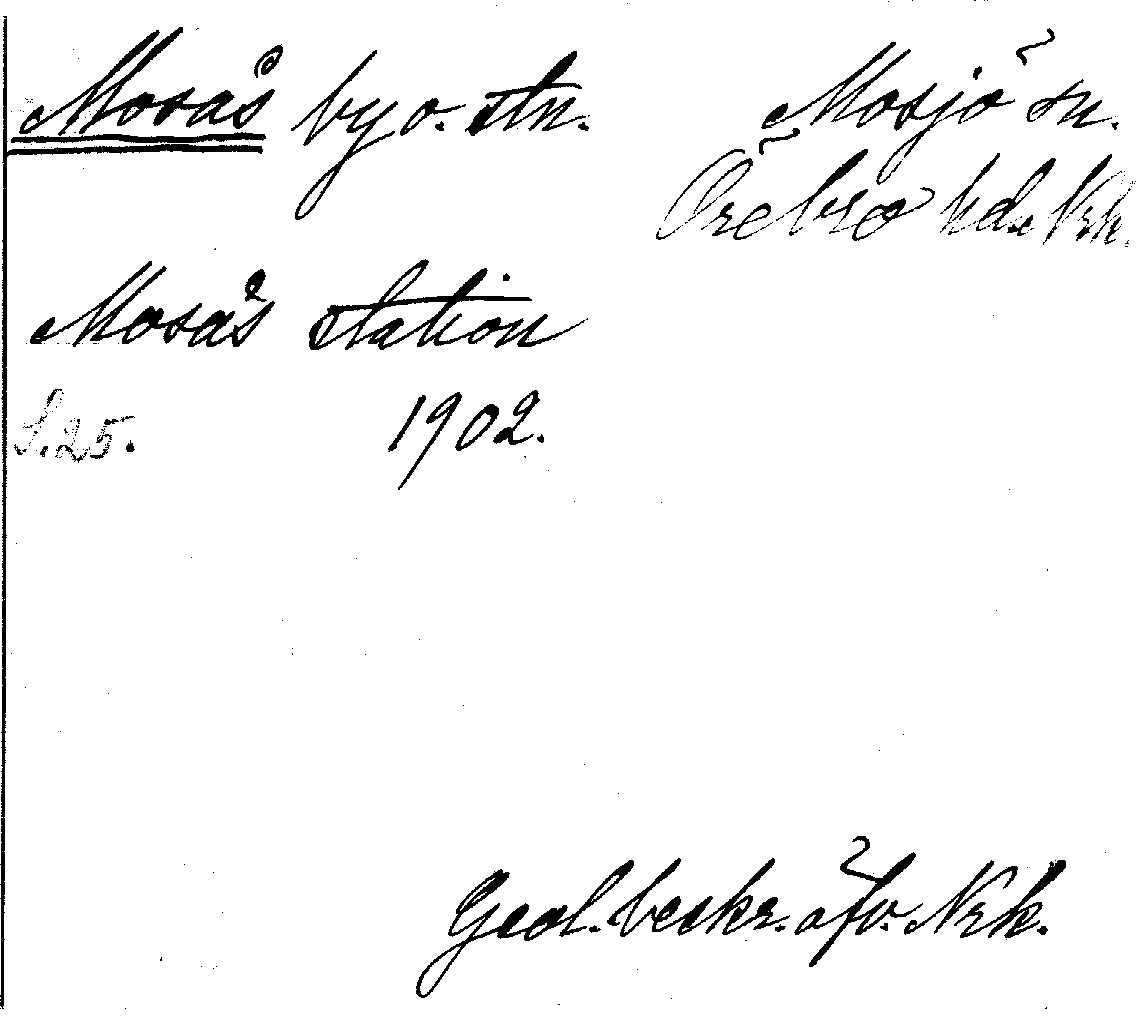 Mosås by o. stn. Mosjö sn.
Örebro hd. Nrk.
Mosås station
S. 25. 1902.
Geol. beskr. öfv. Nrk.